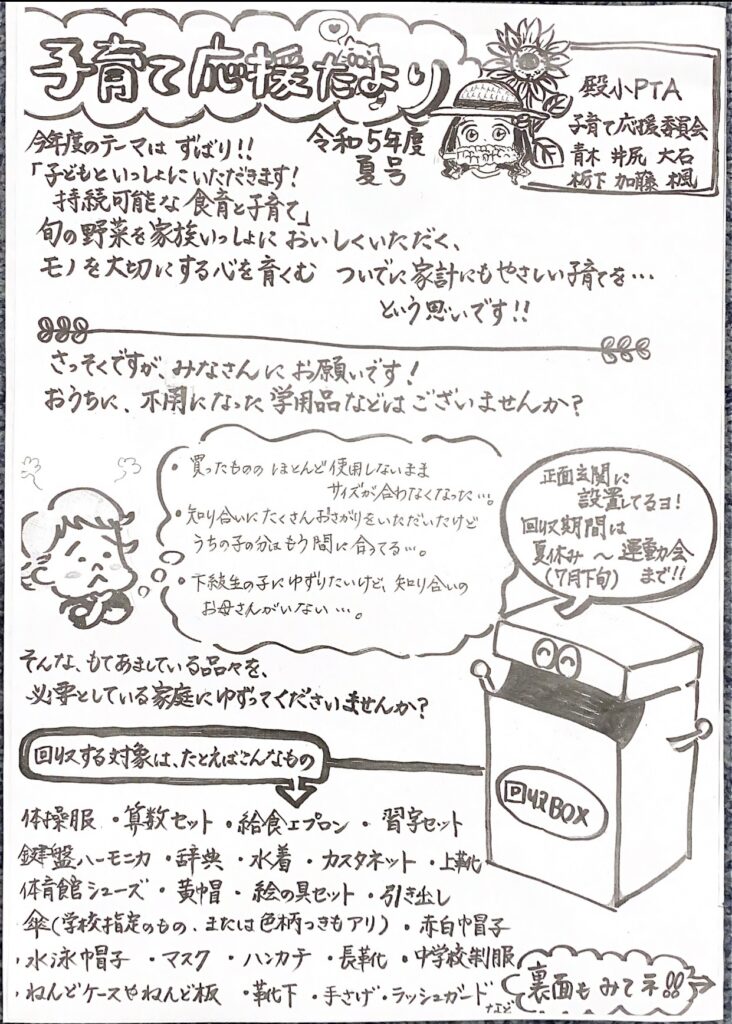 子育て応援だより
令和5年度
夏号
殿小PTA
子育て応援委員会
青木 井尻 大石
栃下 加藤 楓
今年度のテーマは ずばり!!
「子どもといっしょにいただきます!
持続可能な食育と子育て」
旬の野菜を家族いっしょに おいしくいただく、
モノを大切にする心を育くむ ついでに家計にもやさしい子育てを…
という思いです!!
さっそくですが、みなさんにお願いです!
おうちに、不用になった学用品などはございませんか?
・買ったものの ほとんど使用しないまま
サイズが合わなくなった…。
・知り合いにたくさんおさがりをいただいたけど
うちの子の分はもう間に合ってる…。
・下級生の子にゆずりたいけど、知り合いの
お母さんがいない…。
正面玄関に
設置してるヨ!
回収期間は
夏休み ～ 運動会
(7月下旬) まで!!
そんな、もてあましている品々を、
必要としている家庭にゆずってくださいませんか?
回収する対象は、たとえばこんなもの
回収BOX
体操服 ・算数セット ・給食エプロン ・ 習字セット
鍵盤ハーモニカ ・辞典 ・水着 ・カスタネット ・上靴
体育館シューズ ・黄帽 ・絵の具セット ・引き出し
傘(学校指定のもの、または色柄つきもアリ) ・赤白帽子
・水泳帽子 ・マスク ・ハンカチ ・長靴 ・中学校制服
・ねんどケースやねんど板 ・靴下 ・手さげ ・ラッシュガード など
裏面もみてネ!!